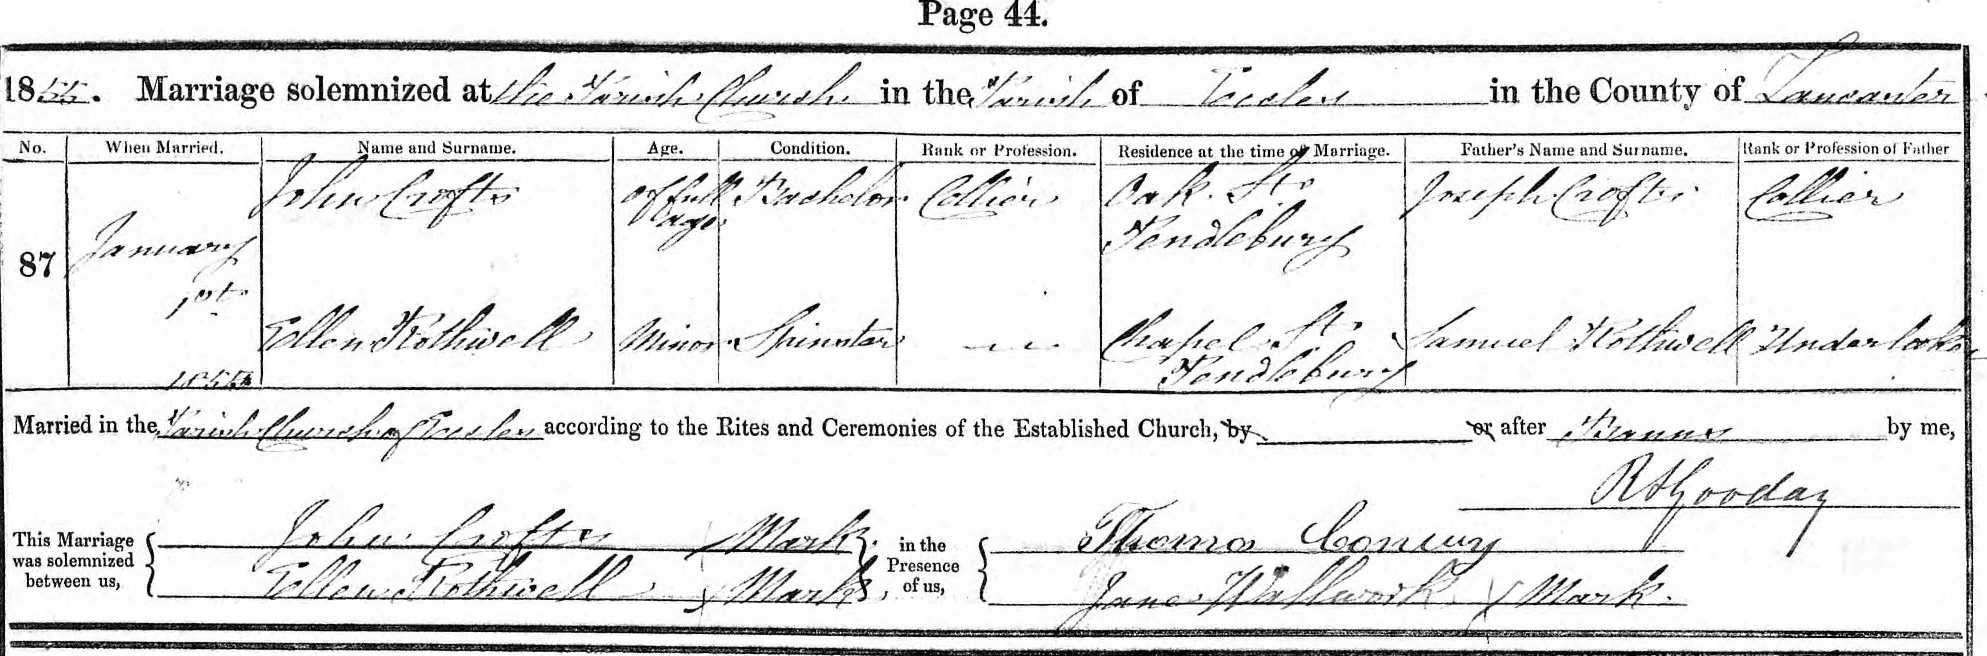 Page 44.
1855. Marriage solemnized at the Parish Church in the Parish of Eccles in the County of Lancaster
No. When Married. Name and Surname. Age. Condition. Rank or Profession. Residence at the time of Marriage. Father's Name and Surname. Rank or Profession of Father
87 January 1st 1855 John Crofts of full age Bachelor Collier Oak St. Pendlebury Joseph Crofts Collier
Ellen Rothwell Minor Spinster — Chapel St. Pendlebury Samuel Rothwell Underlooker
Married in the Parish Church of Eccles according to the Rites and Ceremonies of the Established Church, by or after Banns by me,
R S Gooday
This Marriage was solemnized between us, John Crofts X Mark. in the Presence of us, Thomas Conwy
Ellen Rothwell X Mark. Jane Wallwork X Mark.